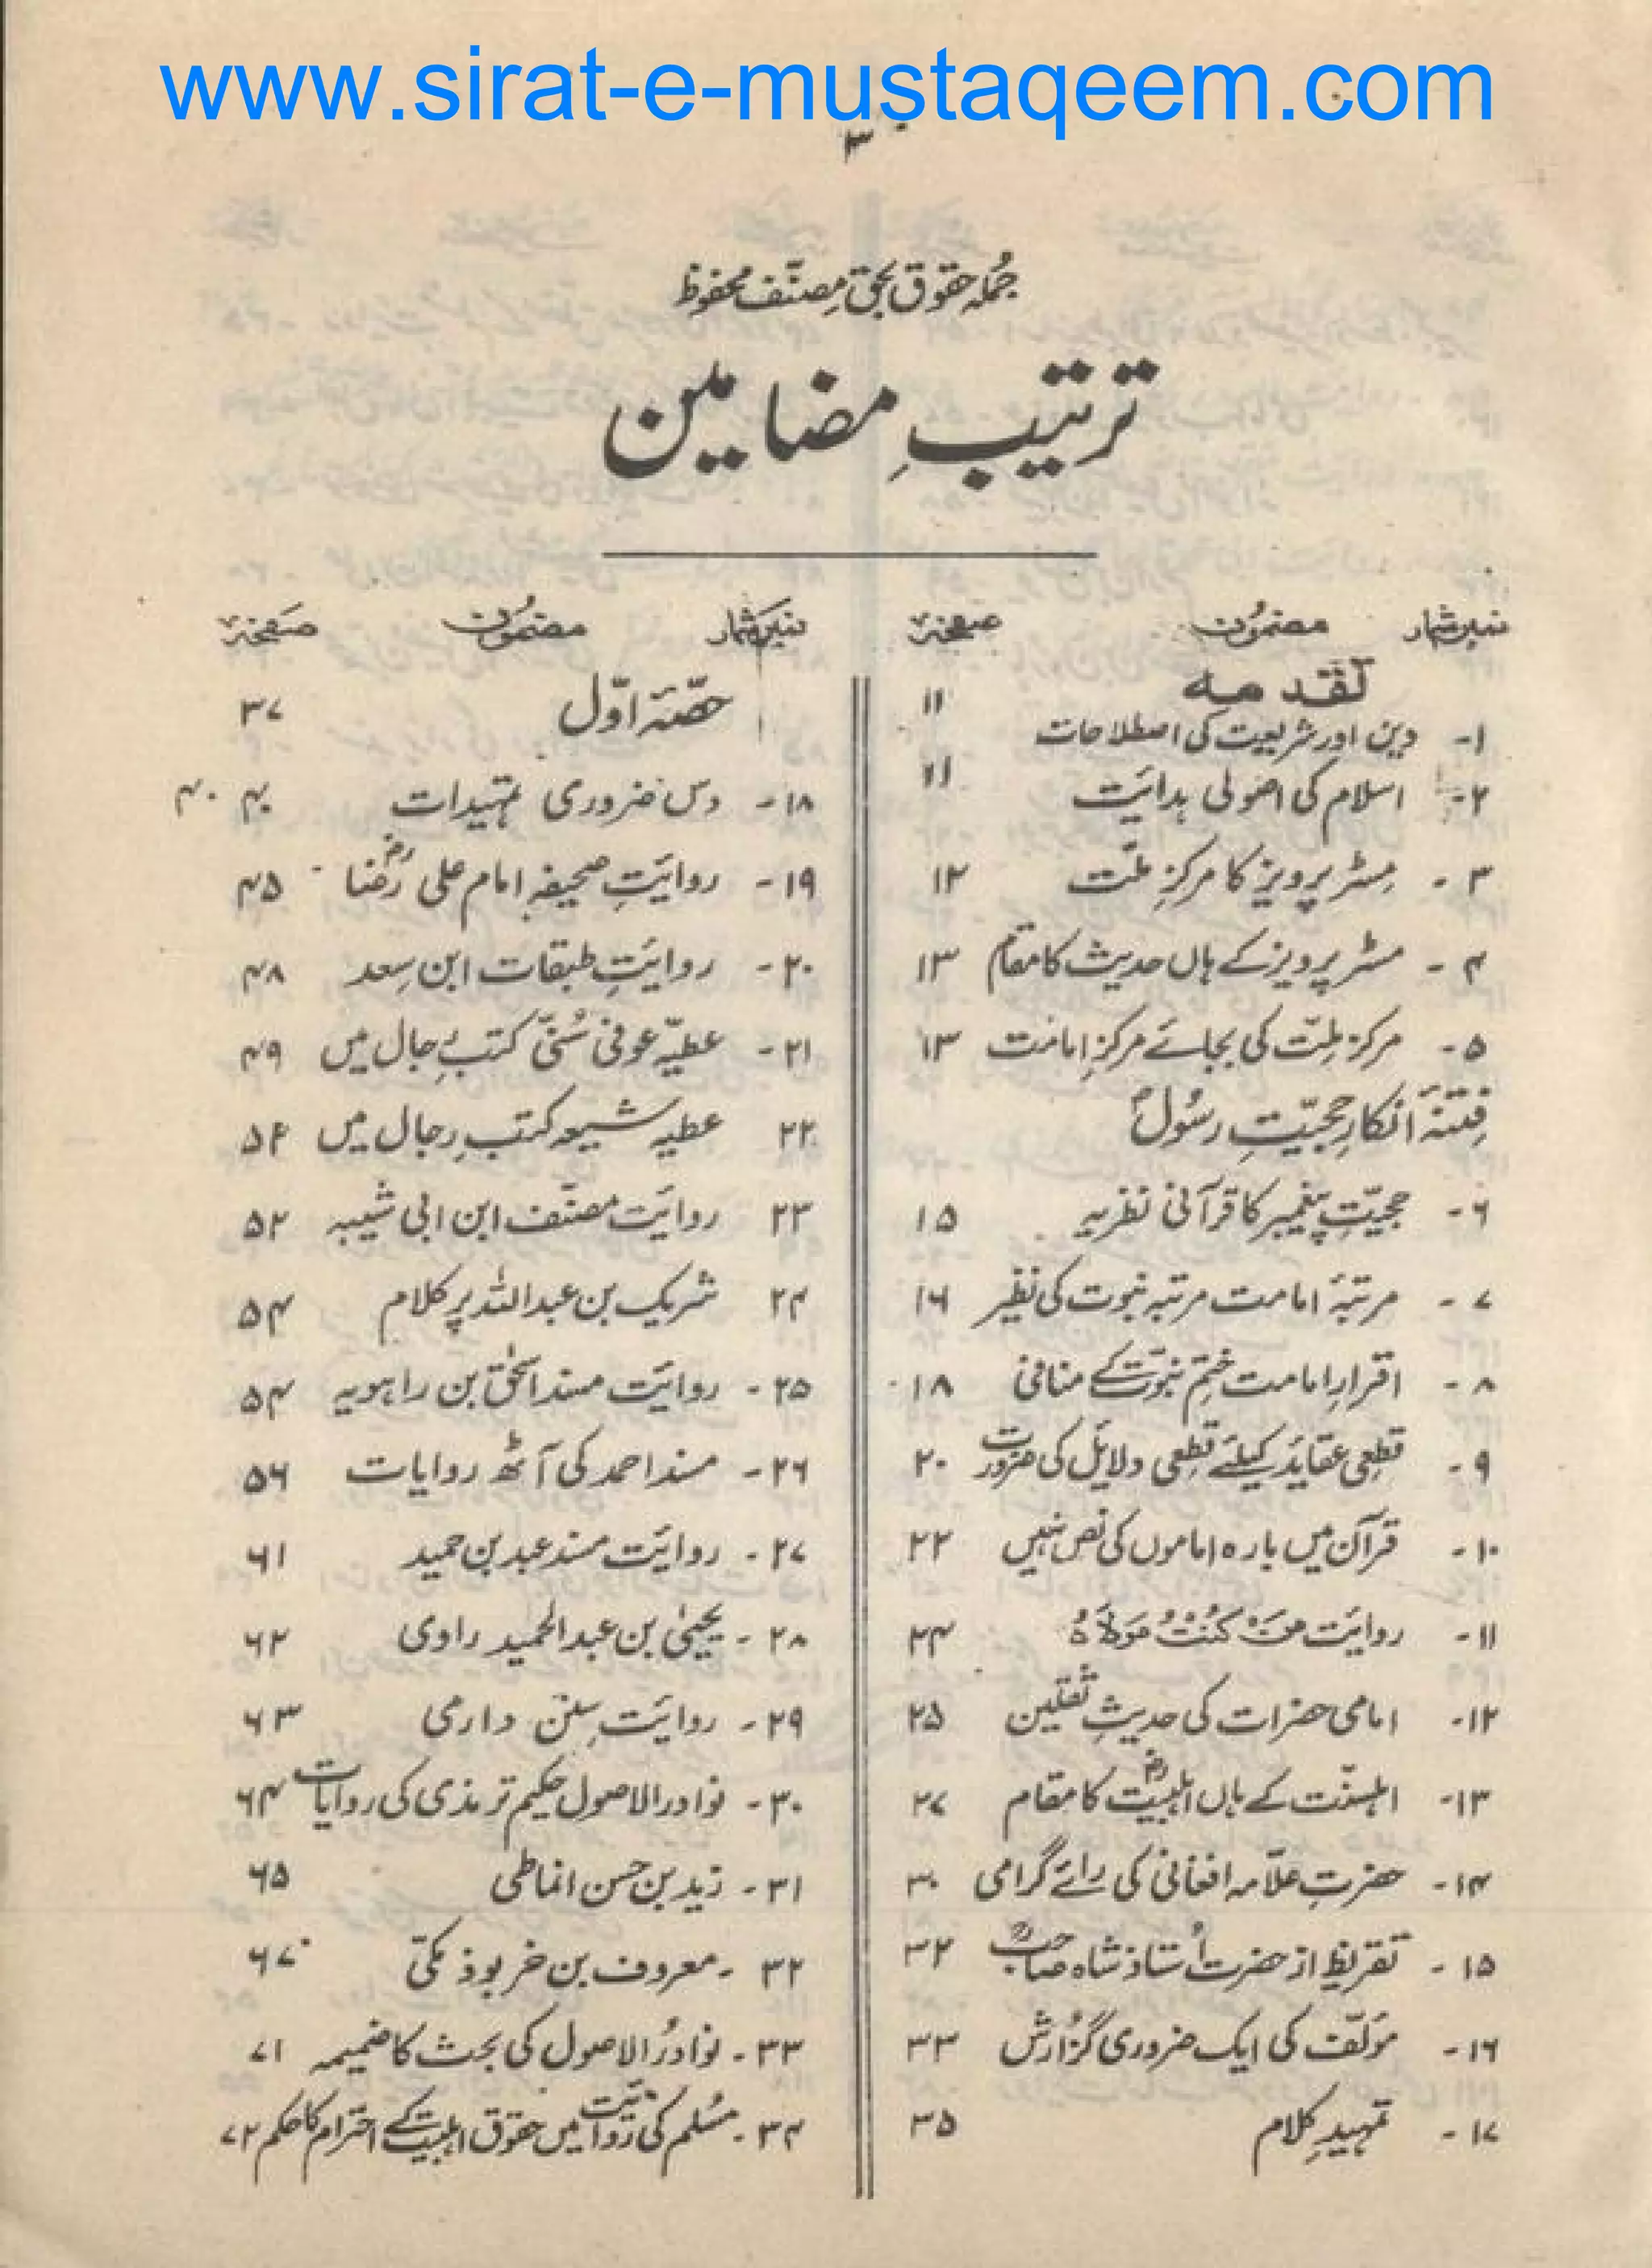 www.sirat-e-mustaqeem.com
۳
جملہ حقوق بحق مصنّف محفوظ
ترتیبِ مضامین
نمبر شمار مضمون صفحہ
تقدمہ ۱۱
۱- دین اور شریعت کی اصطلاحات
۲- اسلام کی اصولی ہدائیت ۱۱
۳- مسٹر پرویز کا مرکزِ ملّت ۱۲
۴- مسٹر پرویز کے ہاں حدیث کا مقام ۱۳
۵- مرکزِ ملّت کی بجائے مرکزِ امامت ۱۳
فتنۂ انکارِ حجیّتِ رسُولؐ
۶- حجیّتِ پیغمبر کا قرآنی نظریہ ۱۵
۷- مرتبۂ امامت مرتبہ نبوت کی نظیر ۱۶
۸- اقرارِ امامت ختمِ نبوّت کے منافی ۱۸
۹- قطعی عقاید کیلئے قطعی دلایل کی ضرورت ۲۰
۱۰- قرآن میں بارہ اماموں کی نص نہیں ۲۲
۱۱- روایَت مَنْ کُنْتُ مَوْلَاہُ ۲۴
۱۲- امامی حضرات کی حدیثِ ثقلین ۲۵
۱۳- اہلسنّت کے ہاں اہلبیتؓ کا مقام ۲۷
۱۴- حضرتِ علّامہ افغانی کی رائے گرامی ۳۰
۱۵- تقریظ از حضرت اُستاذ شاہ صاحبؒ ۳۲
۱۶- مؤلّف کی ایک ضروری گزارش ۳۳
۱۷- تمہیدِ کلام ۳۵
نمبر شمار مضمون صفحہ
حصّہ اوّل ۳۷
۱۸- دس ضروری تمہیدات ۴۰ ۴۰
۱۹- روایَتِ صحیفہ امام علی رضاؓ ۴۵
۲۰- روایَتِ طبقات ابن سعد ۴۸
۲۱- عطیّہ عوفی سُنّی کتبِ رجال میں ۴۹
۲۲ عطیہ شیعہ کتبِ رجال میں ۵۲
۲۳ روایَت مصنّف ابن ابی شیبہ ۵۲
۲۴ شریک بن عبداللہ پر کلام ۵۴
۲۵- روایَت مسند اسحٰق بن راہویہ ۵۴
۲۶- مسند احمد کی آٹھ روایات ۵۶
۲۷- روایَت مسند عبد بن حمید ۶۱
۲۸- یحییٰ بن عبدالحمید راوی ۶۲
۲۹- روایَت سنن دارمی ۶۳
۳۰- نوادر الاصول حکیم ترمذی کی روایات ۶۴
۳۱- زید بن حسن انماطی ۶۵
۳۲- معروف بن خربوذ مکّی ۶۷
۳۳- نوادرُ الاصول کی بحث کا ضمیمہ ۷۱
۳۴- مُسلم کی روایَت میں حقوق اہلبیت کے احترام کا حکم ۷۲